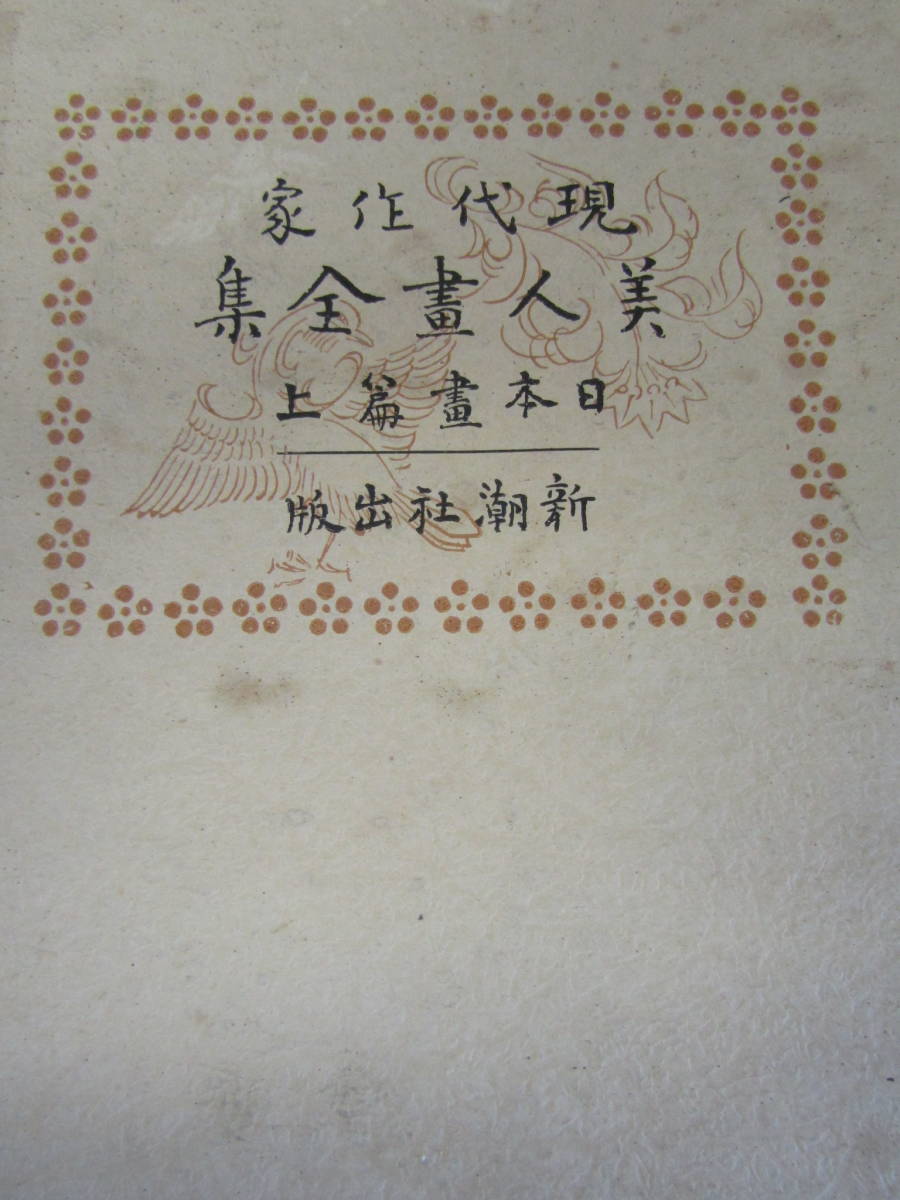 現代作家
美人畫全集
日本畫篇上
新潮社出版